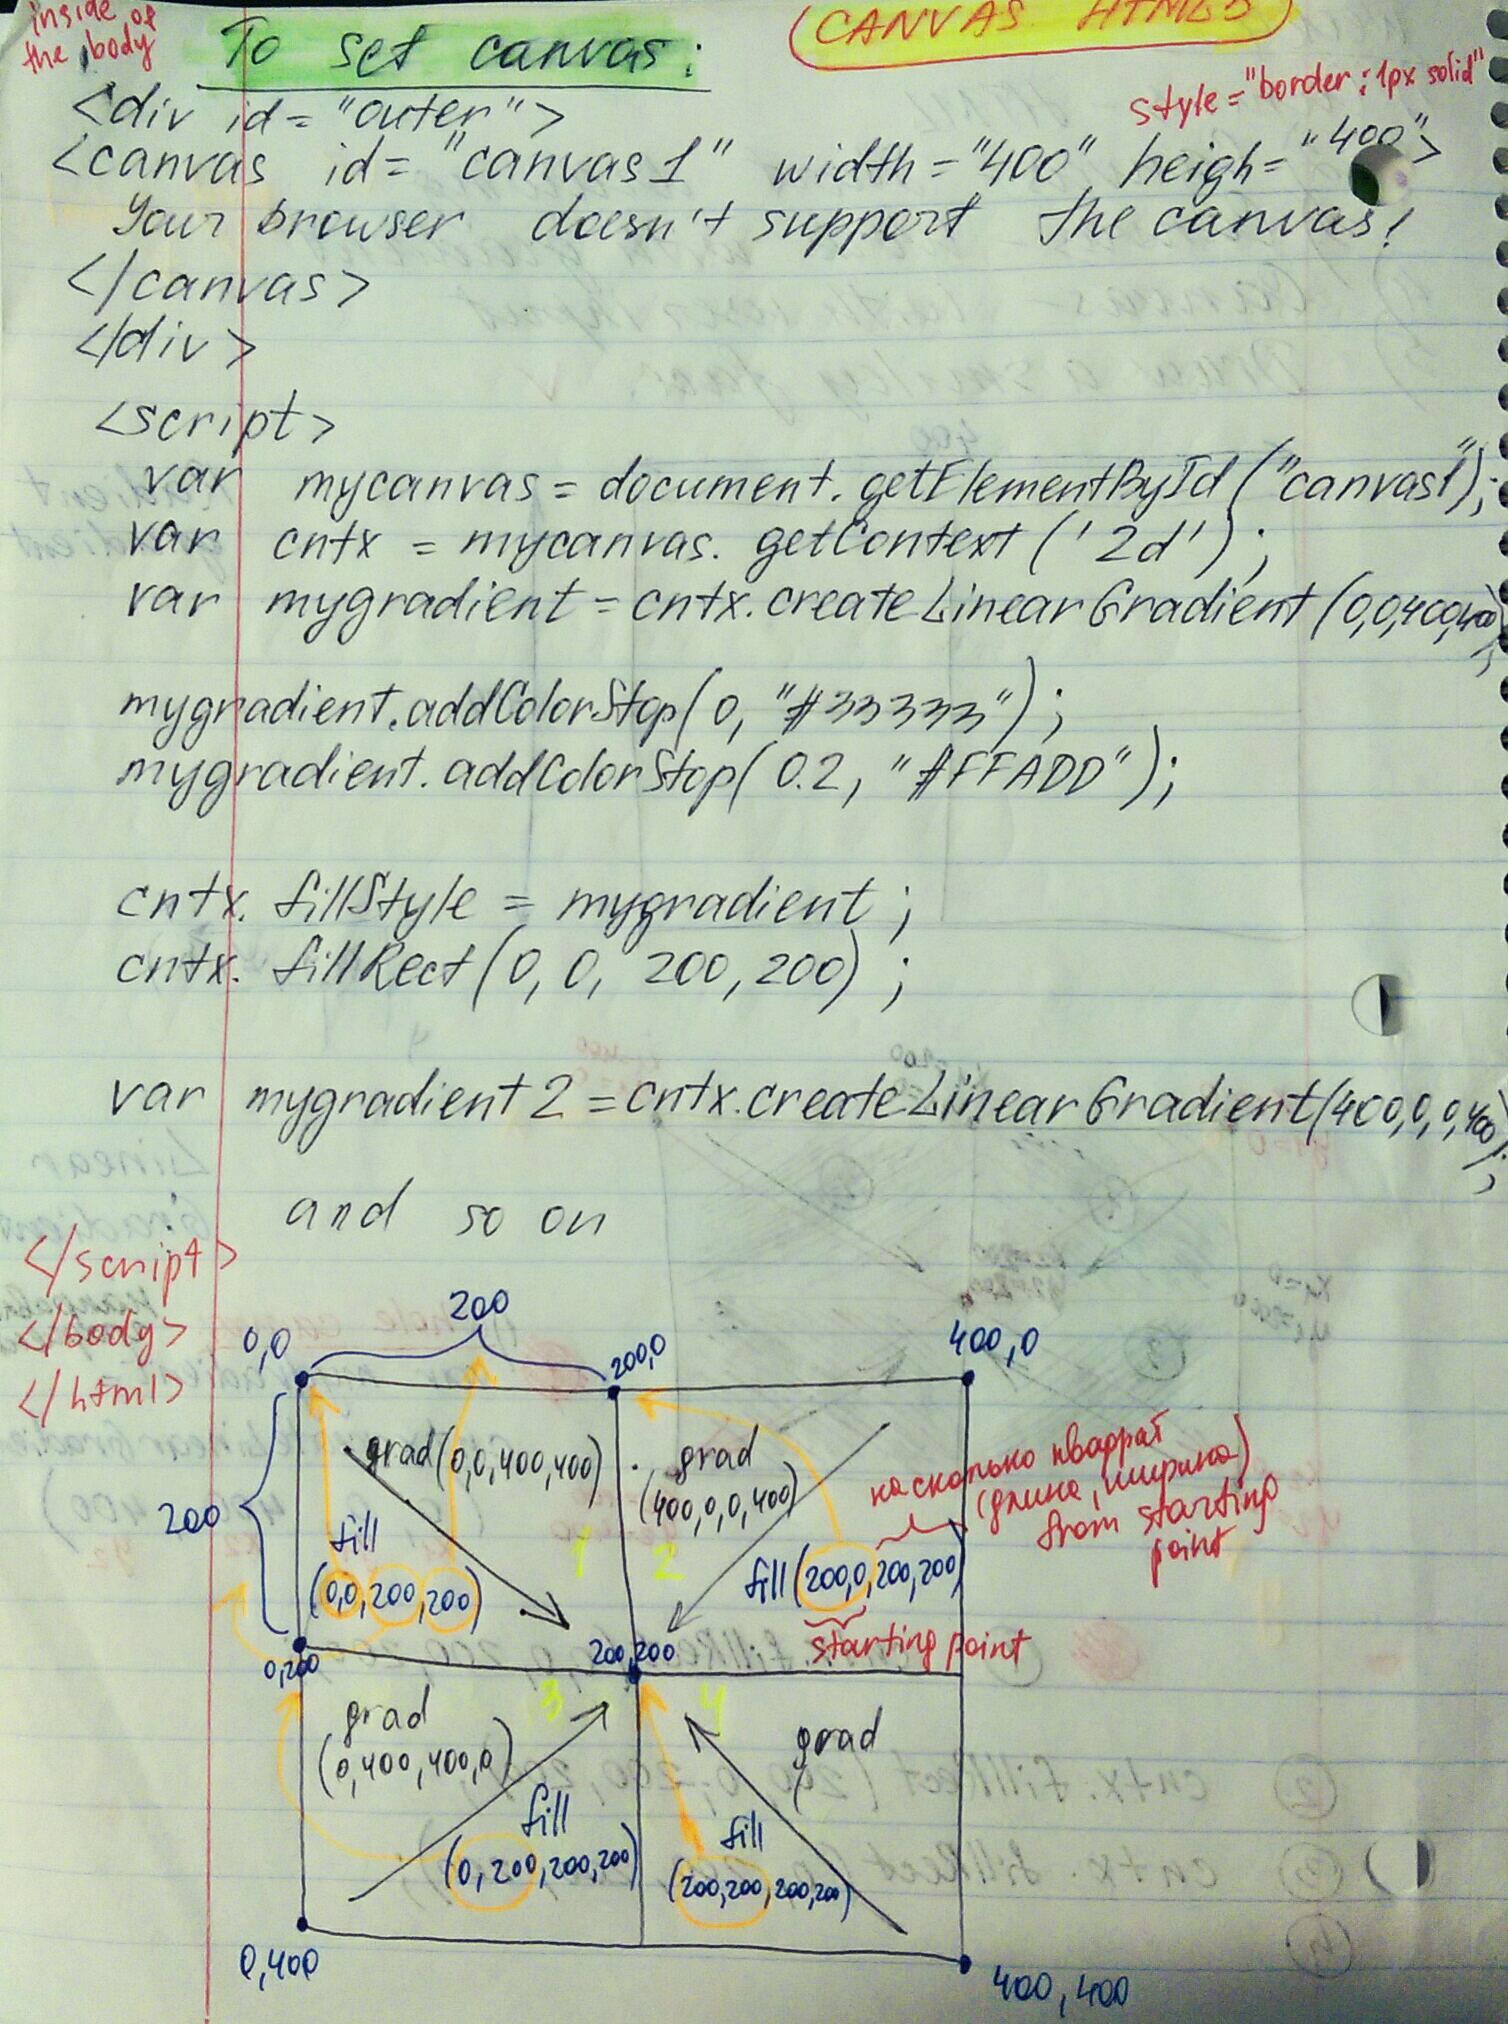 inside of
the body
To set canvas:
CANVAS HTML5
style="border:1px solid"
<div id="outer">
<canvas id="canvas1" width="400" heigh="400">
Your browser doesn't support the canvas!
</canvas>
</div>
<script>
var mycanvas = document.getElementById("canvas1");
var cntx = mycanvas.getContext('2d');
var mygradient = cntx.createLinearGradient(0,0,400,400);
mygradient.addColorStop(0, "#33333");
mygradient.addColorStop(0.2, "#FFADD");
cntx.fillStyle = mygradient;
cntx.fillRect(0, 0, 200, 200);
var mygradient2 = cntx.createLinearGradient(400,0,0,400);
and so on
</script>
</body>
</html>
200
0,0
200,0
400,0
200
grad(0,0,400,400)
fill
(0,0,200,200)
1
grad
(400,0,0,400)
2
fill(200,0,200,200)
на сколько квадрат
(длина, ширина)
from starting
point
starting point
0,200
200,200
grad
(0,400,400,0)
3
fill
(0,200,200,200)
4
grad
fill
(200,200,200,200)
0,400
400,400